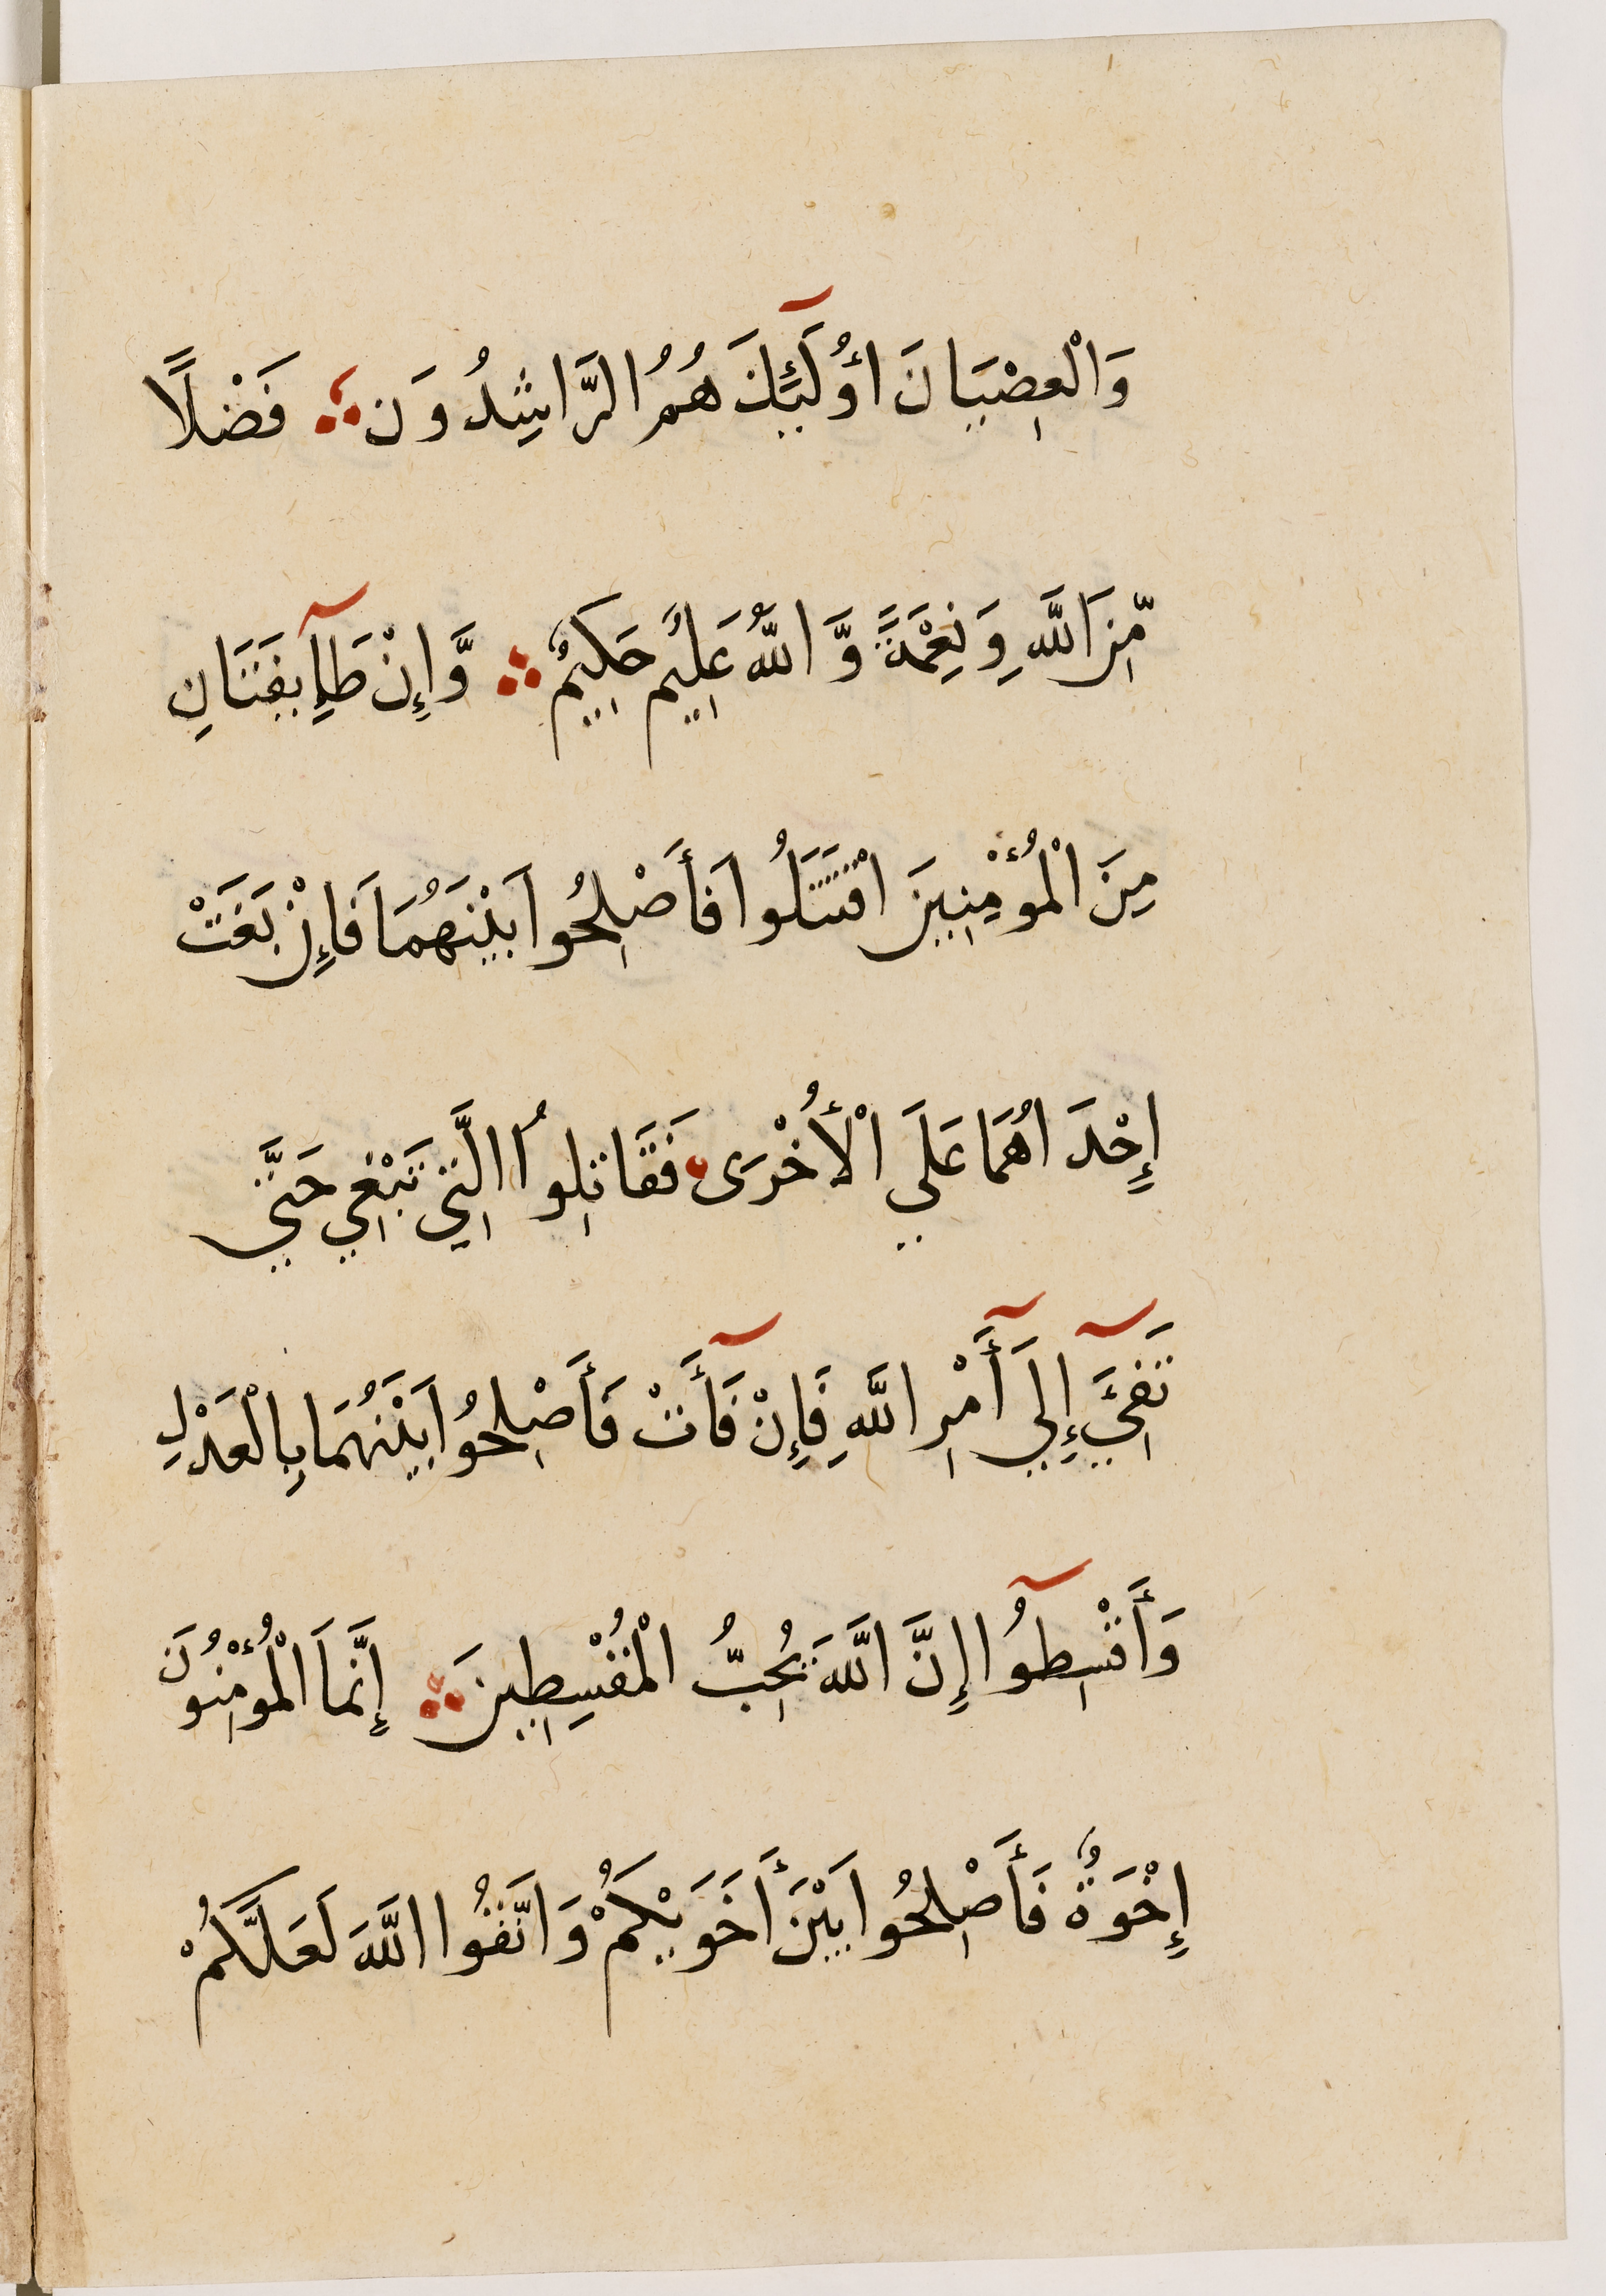 وَالْعِصْيَانَ أُولَٰٓئِكَ هُمُ الرَّاشِدُونَ ۝ فَضْلًا
مِّنَ اللَّهِ وَنِعْمَةً وَّاللَّهُ عَلِيمٌ حَكِيمٌ ۝ وَّإِنْ طَآئِفَتَانِ
مِنَ الْمُؤْمِنِينَ اقْتَتَلُوا فَأَصْلِحُوا بَيْنَهُمَا فَإِنْ بَغَتْ
إِحْدَاهُمَا عَلَي الْأُخْرَى فَقَاتِلُوا الَّتِي تَبْغِي حَتَّي
تَفِيٓءَ إِلَيٓ أَمْرِ اللَّهِ فَإِنْ فَآءَتْ فَأَصْلِحُوا بَيْنَهُمَا بِالْعَدْلِ
وَأَقْسِطُوٓا إِنَّ اللَّهَ يُحِبُّ الْمُقْسِطِينَ ۝ إِنَّمَا الْمُؤْمِنُونَ
إِخْوَةٌ فَأَصْلِحُوا بَيْنَ أَخَوَيْكُمْ وَاتَّقُوا اللَّهَ لَعَلَّكُمْ